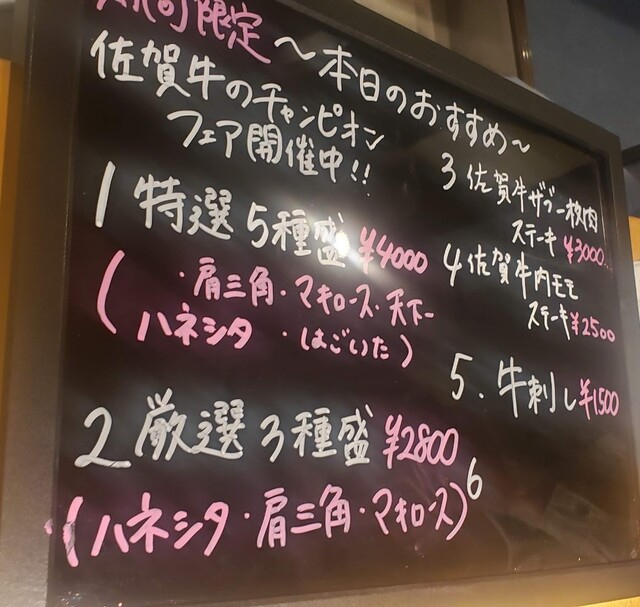 期間限定
～本日のおすすめ～
佐賀牛のチャンピオン
フェア開催中!!
1 特選5種盛 ¥4000
(・肩三角・マキロース・天下一
ハネシタ ・はごいた)
2 厳選3種盛 ¥2800
・(ハネシタ・肩三角・マキロース)
3 佐賀牛ザブ一枚肉
ステーキ ¥3000
4 佐賀牛内モモ
ステーキ ¥2500
5. 牛刺し ¥1500
6